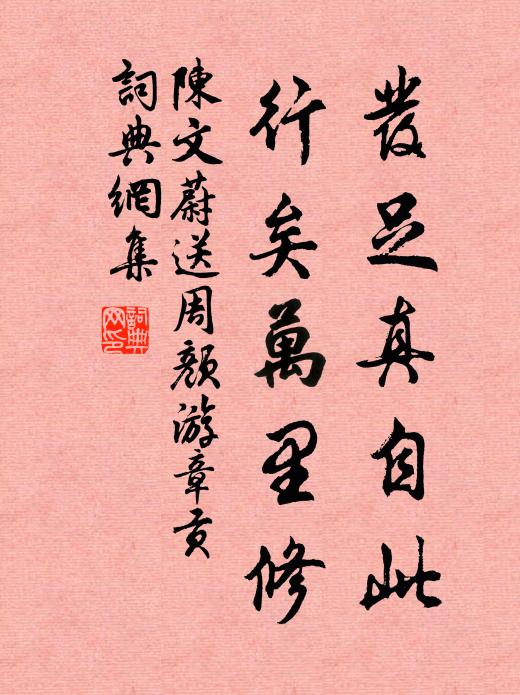 發足真自此
行矣萬里修
陳文蔚送周顏游章貢
詞典網集
詞典
网印